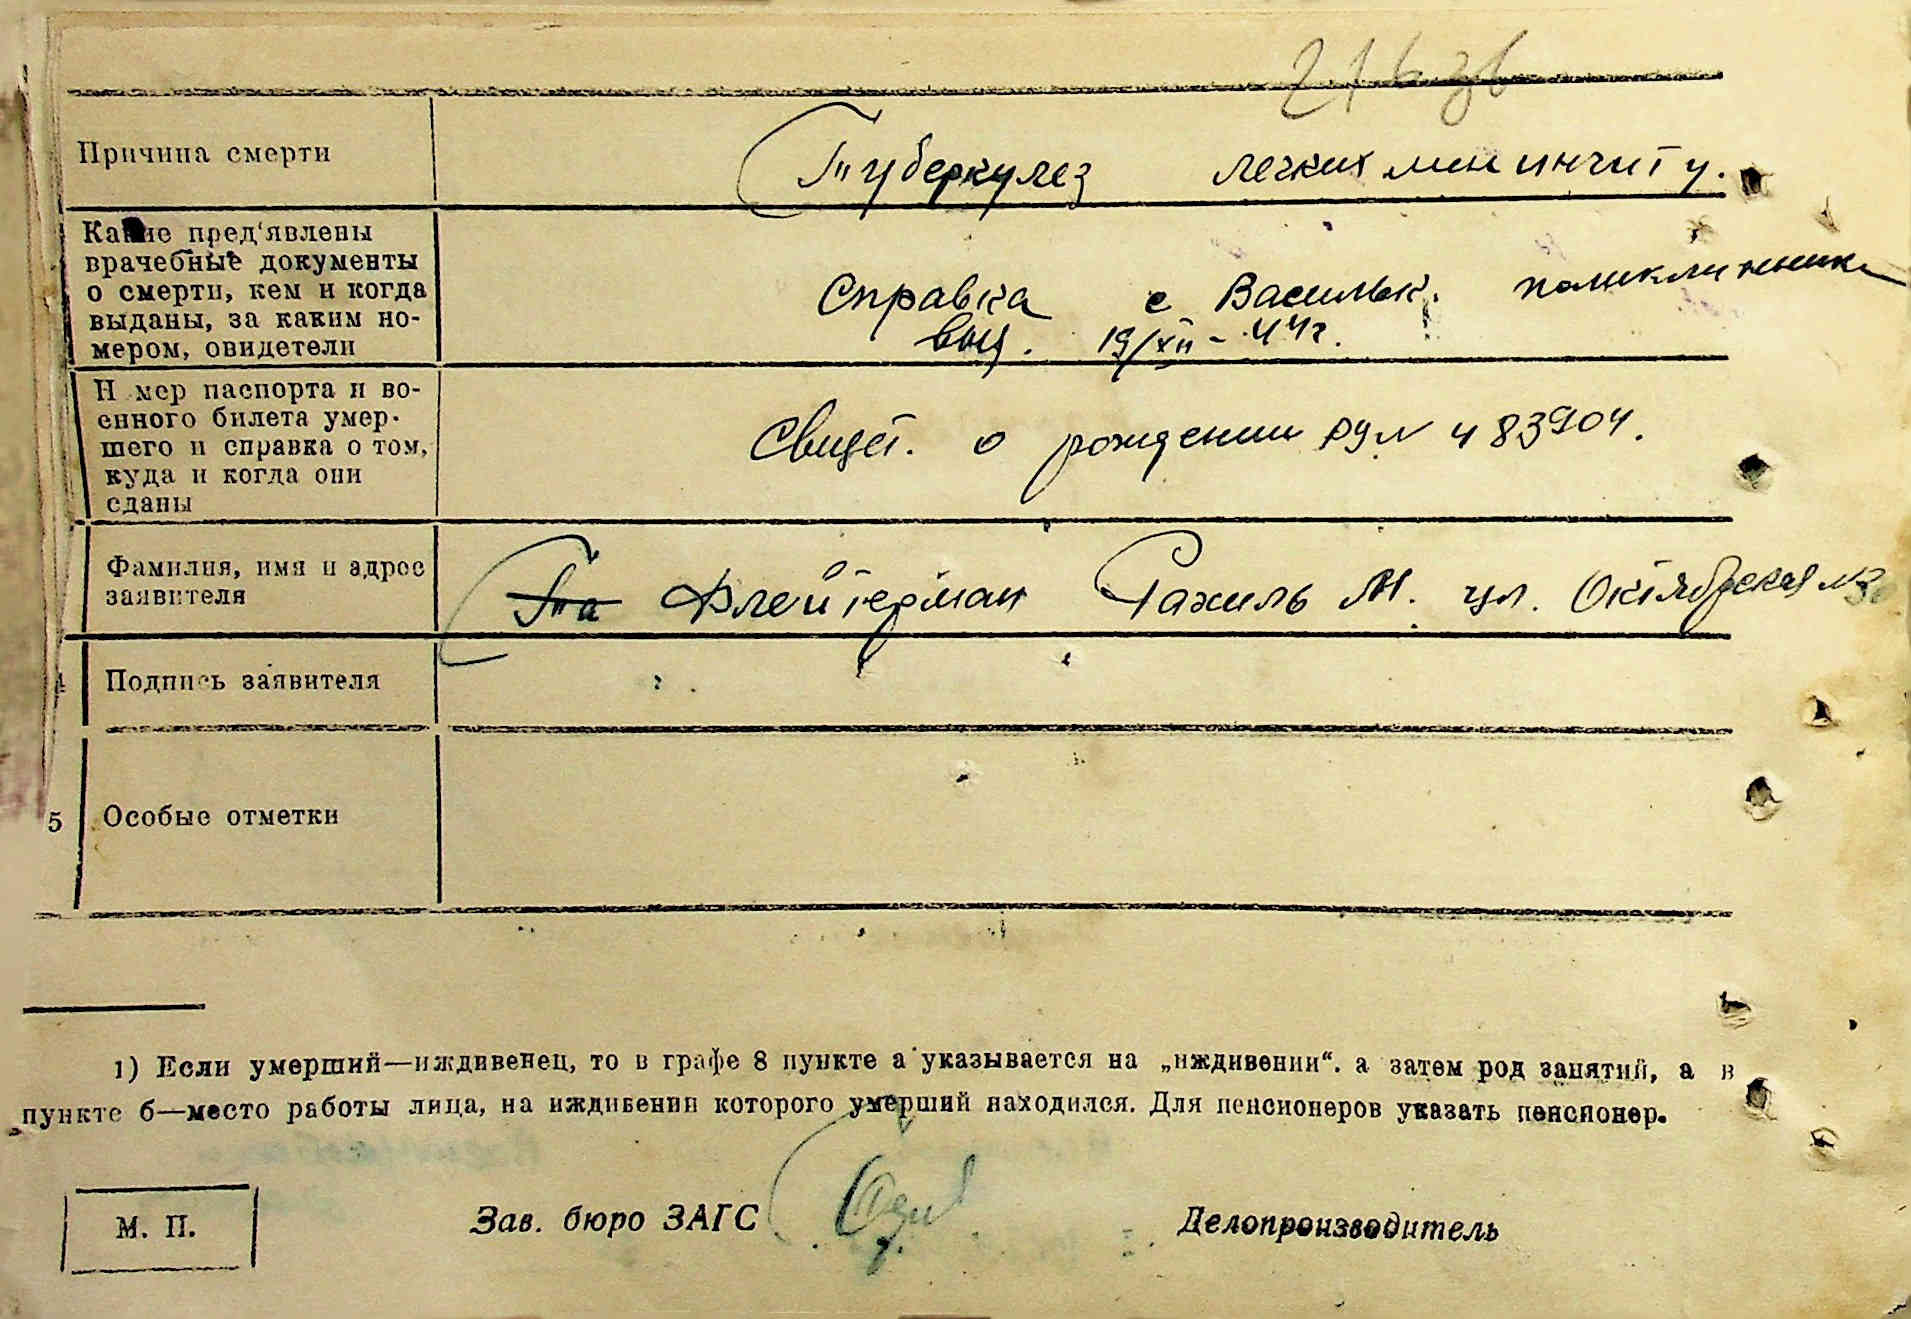 Причина смерти
Туберкулез легких мининчиту.
Какие пред'явлены
врачебные документы
о смерти, кем и когда
выданы, за каким но-
мером, овидетели
Справка с Васильк. поликлинники
выд. 19/XII - 44г.
Н мер паспорта и во-
енного билета умер-
шего и справка о том,
куда и когда они
сданы
Свидет. о рождении № 483904.
Фамилия, имя и адрес
заявителя
Флейтерман Рахиль М. ул. Октябрская №
Подпись заявителя
5 Особые отметки
1) Если умерший—иждивенец, то в графе 8 пункте а указывается на „иждивении“. а затем род занятий, а в
пункте б—место работы лица, на иждивении которого умерший находился. Для пенсионеров указать пенсионер.
М. П.
Зав. бюро ЗАГС
Делопроизводитель